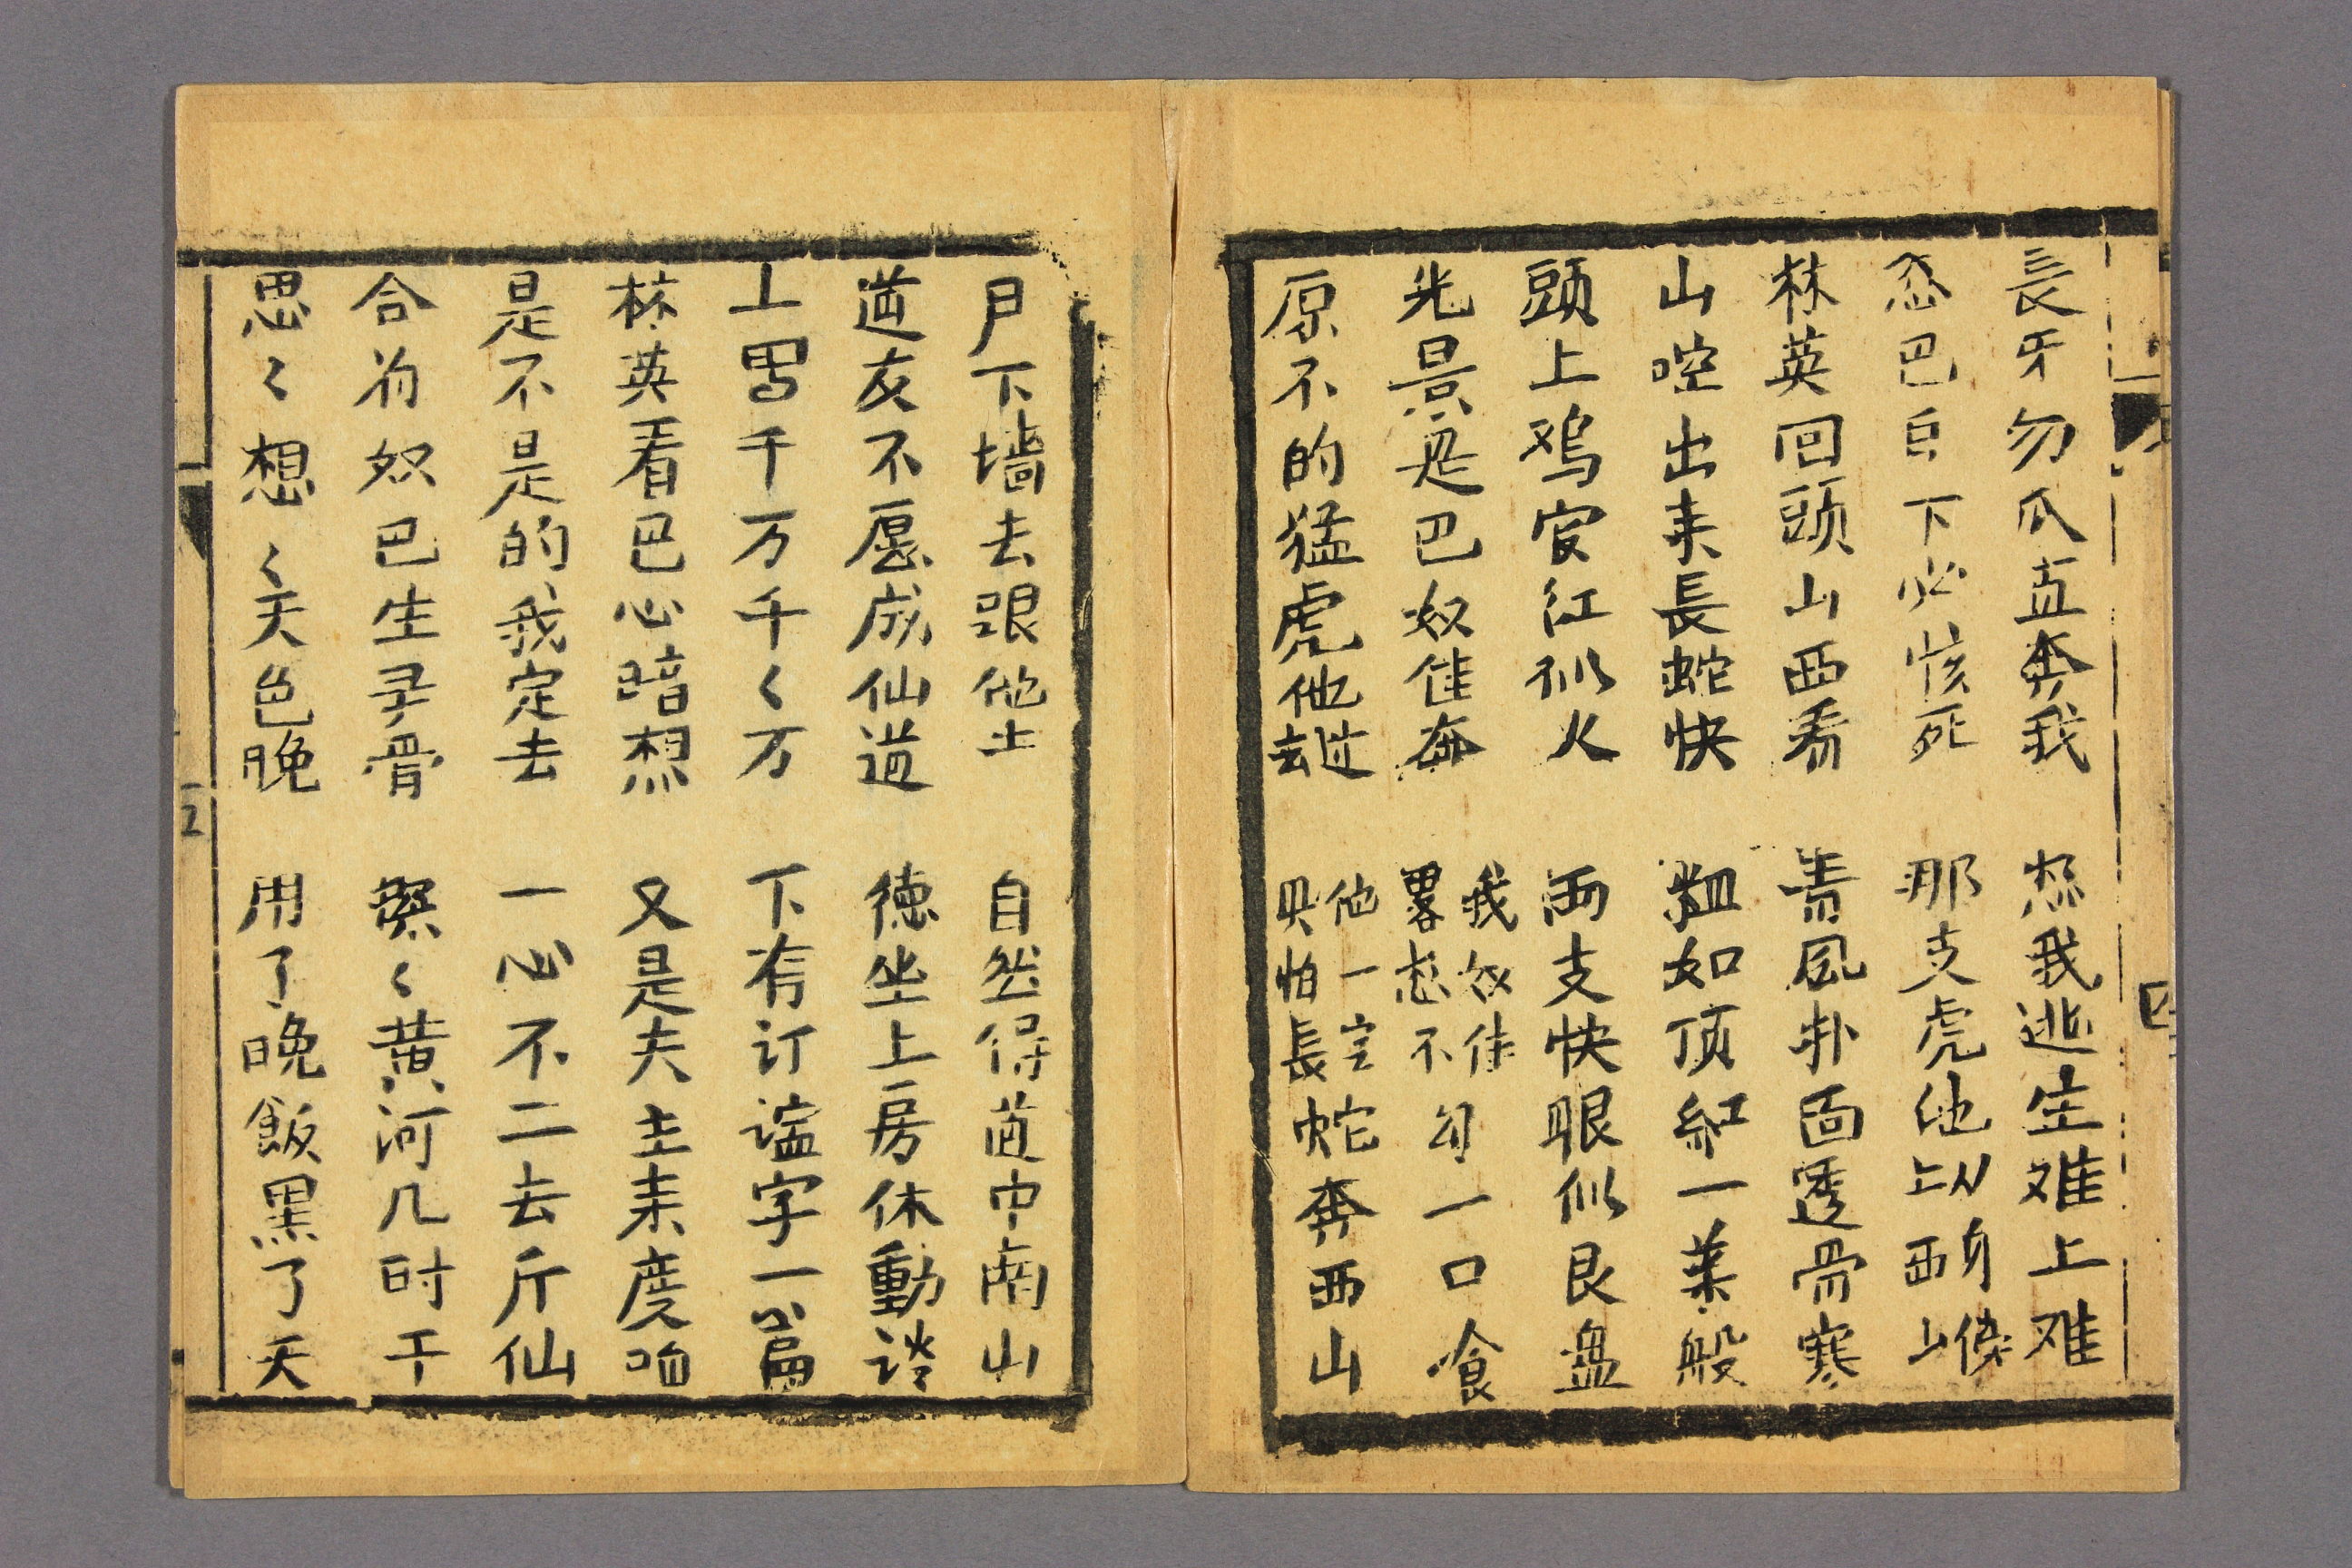 長牙勿爪直奔我 怒我逃生难上难
忝巴自下必该死 那支虎他上
林英回頭山西看 青風扑面透骨寒
山啌出来長蛇快 粗如顶紅一莱般
頭上鸡官红似火 两支快眼似艮盘
光景是巴奴隹奔 我奴隹畧忝不勾一口飡
原不的猛虎他过去 他一定惧怕長蛇奔西山
四
尸下墙去跟他上 自然得道中南山
道友不愿成仙道 德坐上房休動谈
上畧千万千〻万 下有订谥字一篇
林英看巴心暗想 又是夫主来度咱
是不是的我定去 一心不二去斤仙
合为奴巴生寻骨 緊〻黄河几时干
思〻想〻天色晚 用了晚飯黑了天